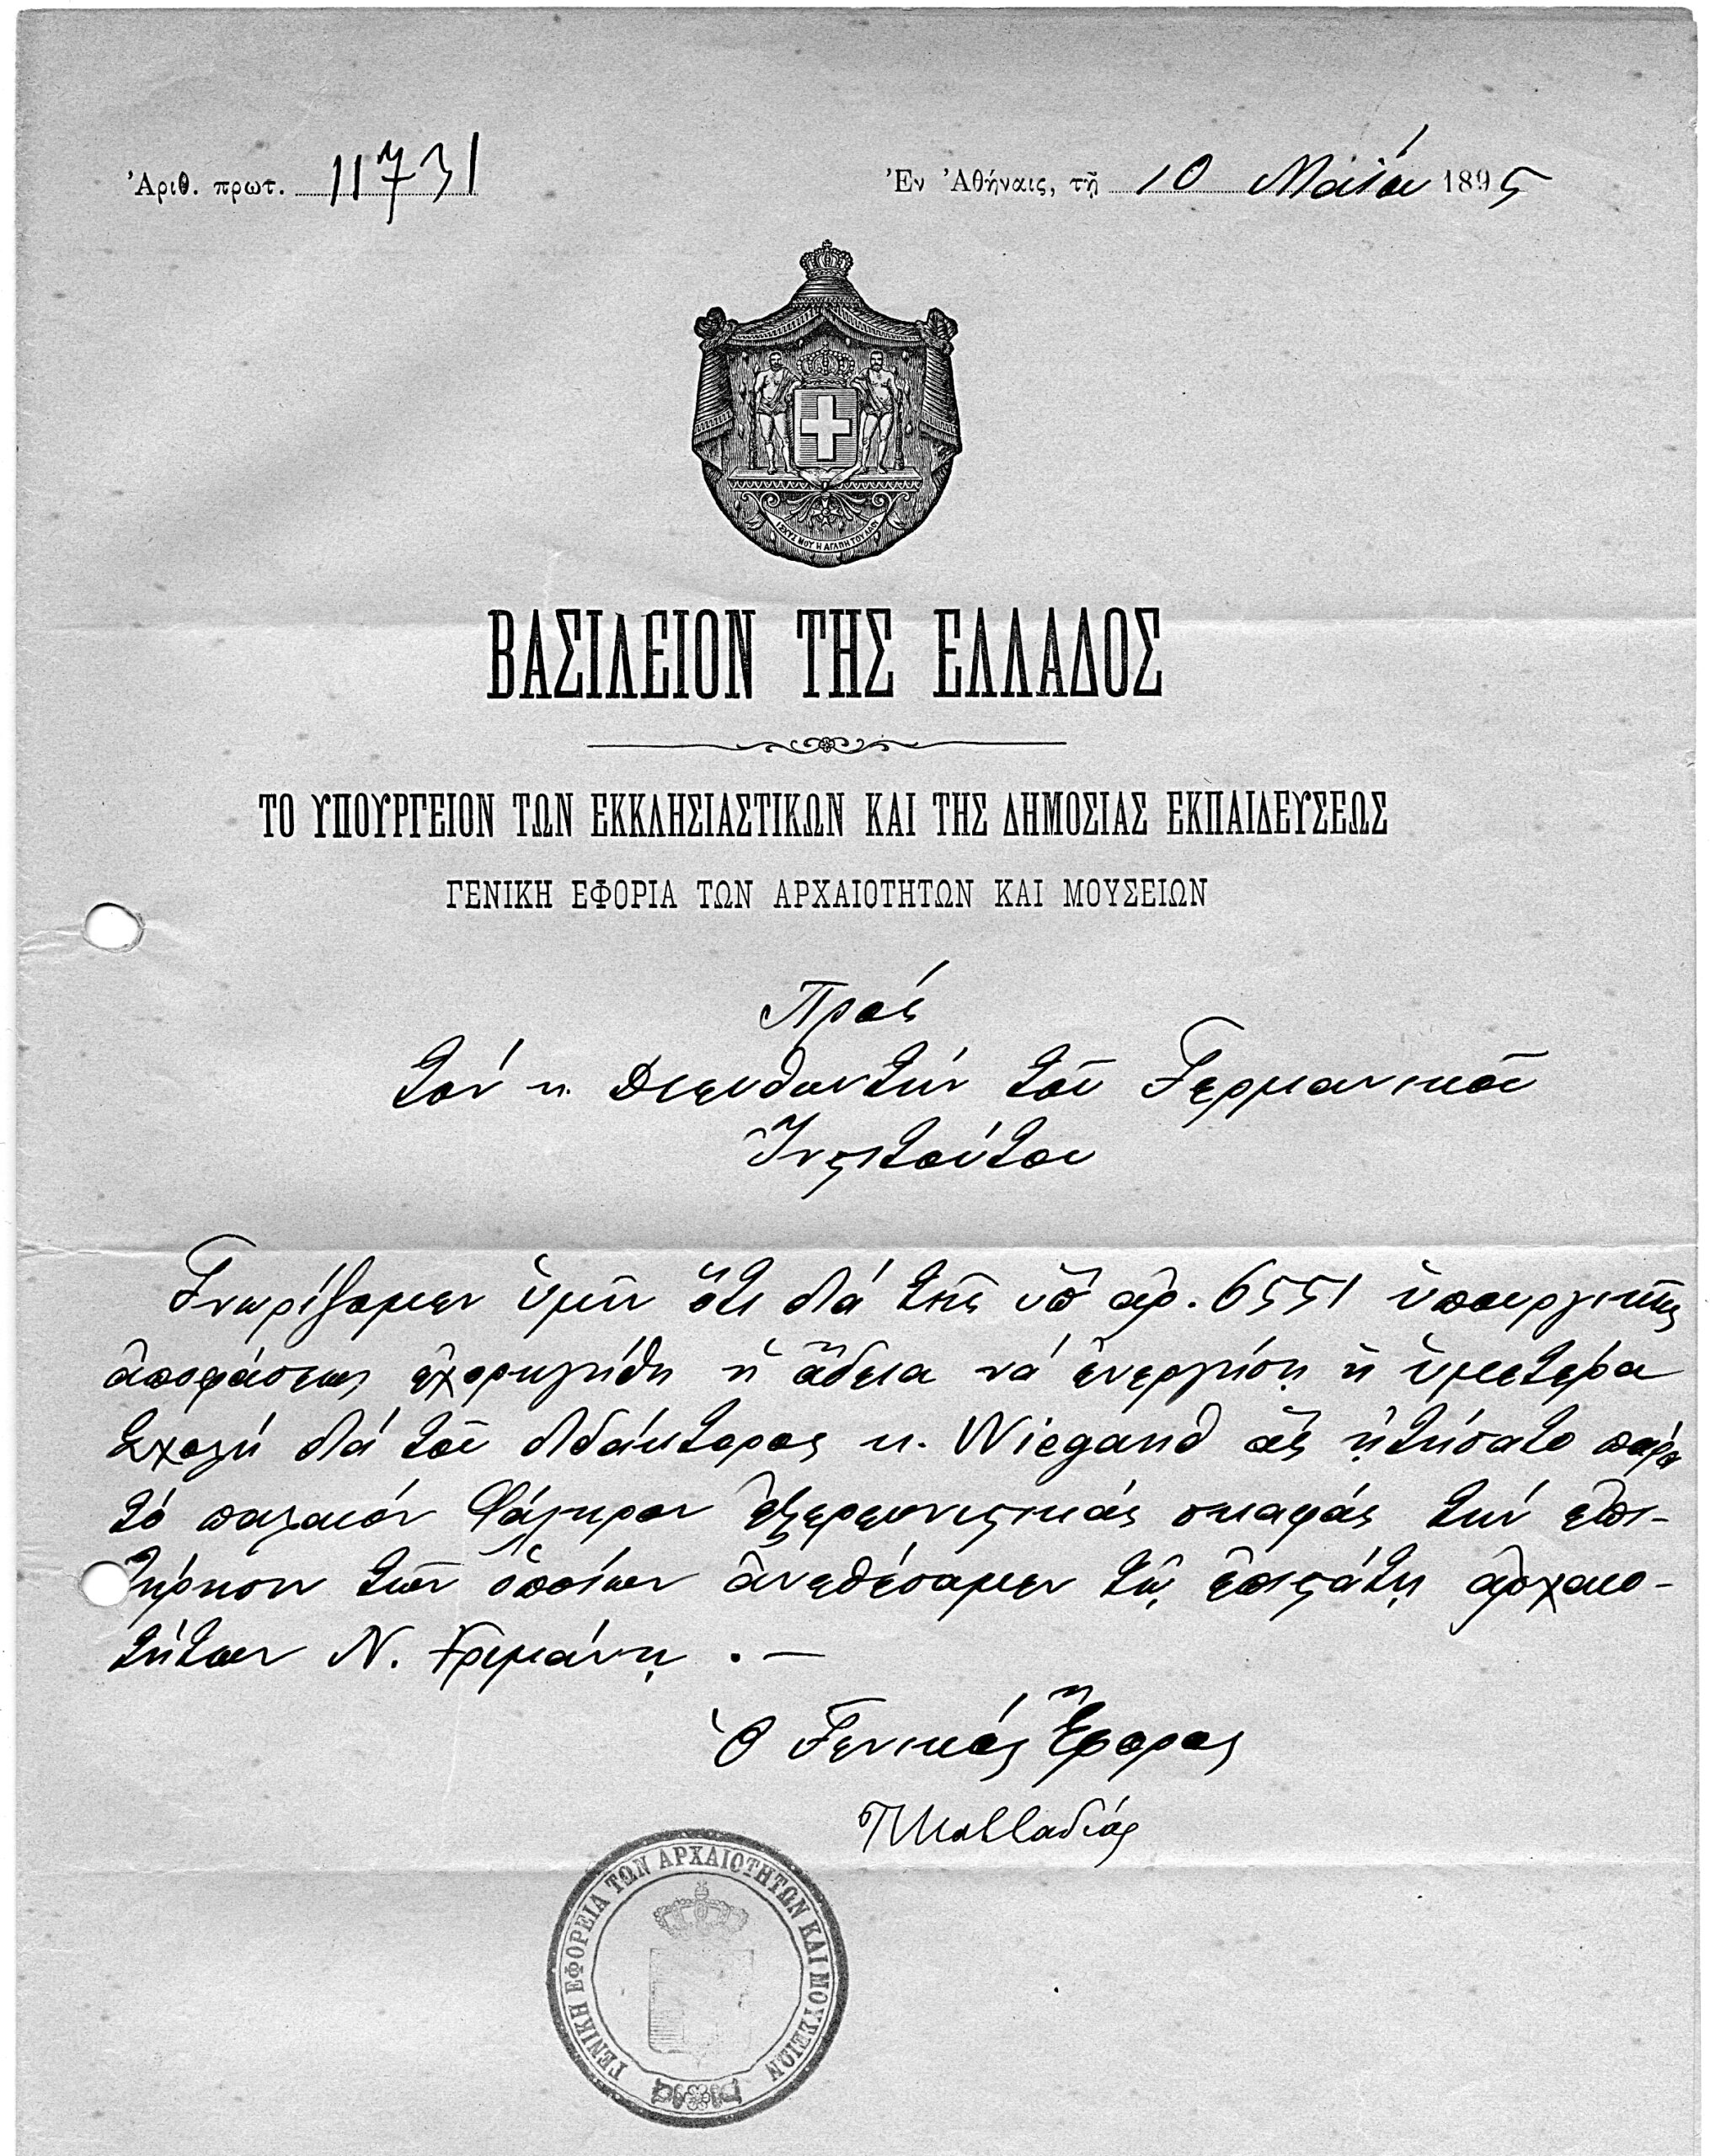 Ἀριθ. πρωτ. 11731
Ἐν Ἀθήναις, τῇ 10 Μαΐου 1895
ΙΣΧΥΣ ΜΟΥ Η ΑΓΑΠΗ ΤΟΥ ΛΑΟΥ
ΒΑΣΙΛΕΙΟΝ ΤΗΣ ΕΛΛΑΔΟΣ
ΤΟ ΥΠΟΥΡΓΕΙΟΝ ΤΩΝ ΕΚΚΛΗΣΙΑΣΤΙΚΩΝ ΚΑΙ ΤΗΣ ΔΗΜΟΣΙΑΣ ΕΚΠΑΙΔΕΥΣΕΩΣ
ΓΕΝΙΚΗ ΕΦΟΡΙΑ ΤΩΝ ΑΡΧΑΙΟΤΗΤΩΝ ΚΑΙ ΜΟΥΣΕΙΩΝ
Πρός
τόν κ. Διευθυντήν τοῦ Γερμανικοῦ
Ἰνςτιτούτου
Γνωρίζομεν ὑμῖν ὅτι διά τῆς ὑπ' ἀρ. 6551 ὑπουργικῆς
ἀποφάσεως ἐχορηγήθη ἡ ἄδεια νά ἐνεργήσῃ ἡ ὑμετέρα
Σχολή διά τοῦ διδάκτορος κ. Wiegand ἅς ᾐτήσατο παρά
τό παλαιόν Φάληρον ἐξερευνητικάς σκαφάς τήν ἐπι-
τήρησιν τῶν ὁποίων ἀνεθέσαμεν τῷ ἐπιστάτῃ ἀρχαιο-
τήτων Ν. .—
Ὁ Γενικός Ἔφορος
Π Καββαδίας
ΓΕΝΙΚΗ ΕΦΟΡΕΙΑ ΤΩΝ ΑΡΧΑΙΟΤΗΤΩΝ ΚΑΙ ΜΟΥΣΕΙΩΝ